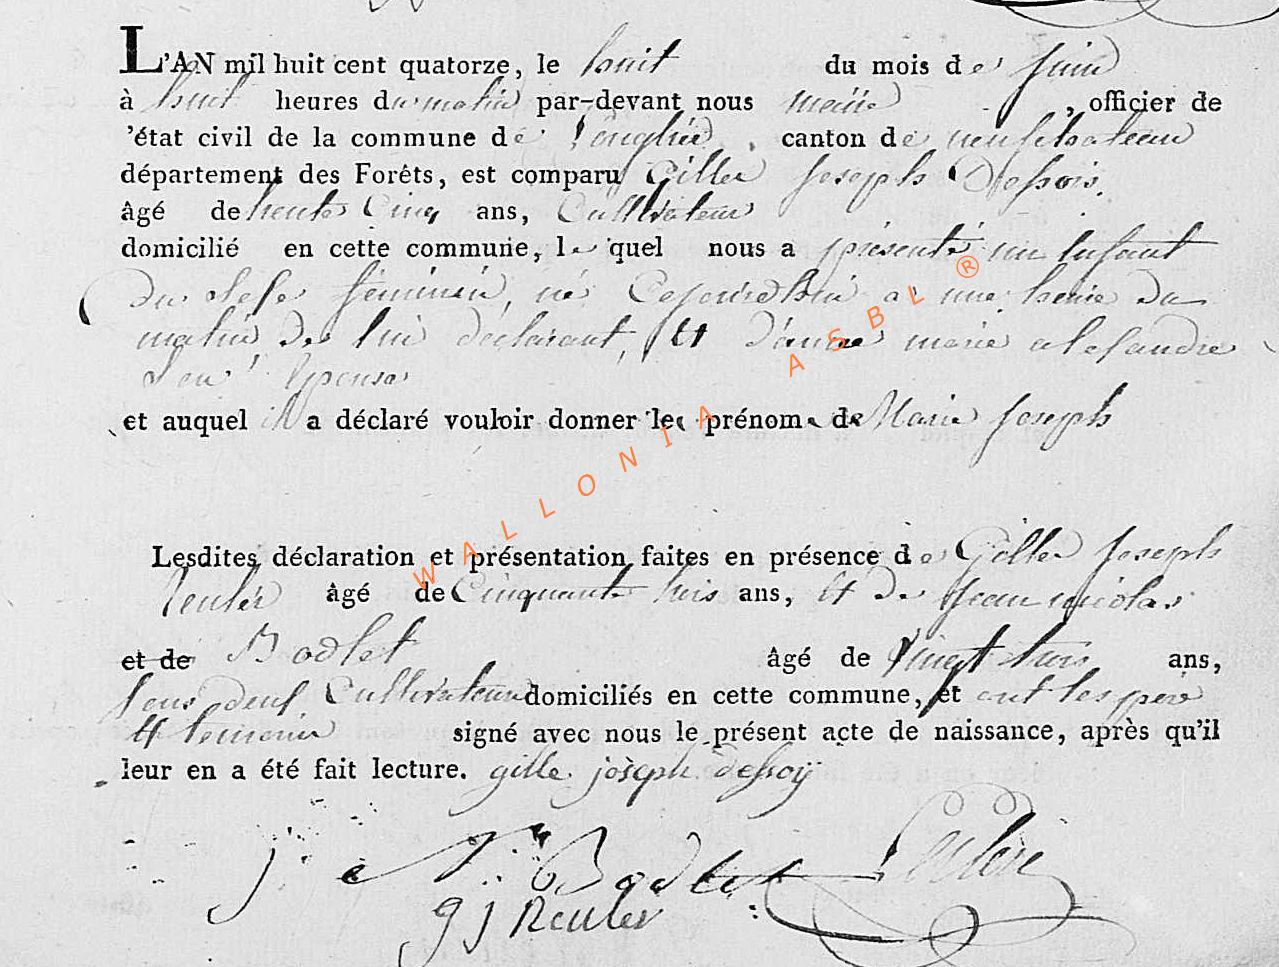 L'AN mil huit cent quatorze, le huit du mois de juin
à huit heures du matin par-devant nous maire, officier de
'état civil de la commune de Longlier, canton de neufchateau
département des Forêts, est comparu Gille Joseph Dessois,
âgé de trente Cinq ans, Cultivateur
domicilié en cette commune, le quel nous a présenté un Enfant
Du Sexe féminin, né Cejourdhui a une heure du
matin De lui déclarant, Et D'anne marie alexandre
Son Epouse
et auquel il a déclaré vouloir donner les prénoms de Marie Joseph
Lesdites déclaration et présentation faites en présence de Gille Joseph
Reuler âgé de Cinquante trois ans, Et De Jean nicolas
et de Bodlet âgé de Vingt trois ans,
tous deux Cultivateurs domiciliés en cette commune, et ont les pere
Et temoins signé avec nous le présent acte de naissance, après qu'il
leur en a été fait lecture. gille joseph dessoÿ
J N Bodlet
g j Reuler
WALLONIA ASBL ®